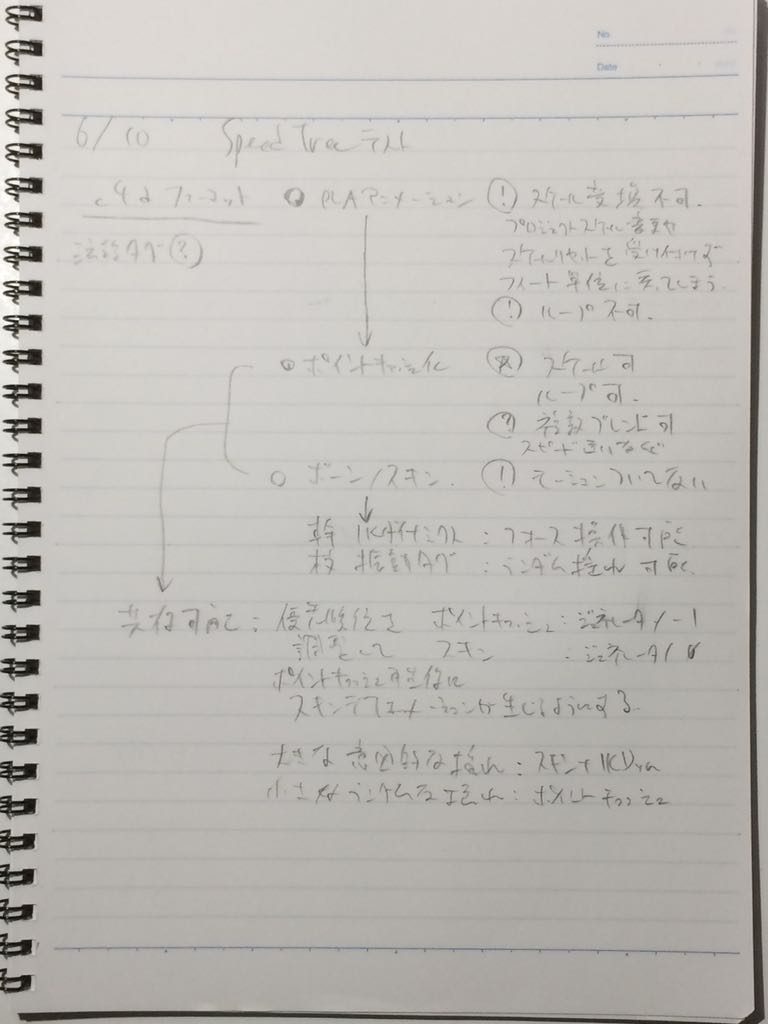 No
Date
6/10 Speed Tree テスト
c4d フォーマット ● PLAアニメーション ! スケール変換不可.
プロジェクトスケール変更や
注釈タグ(?) スケールリセットを受け付けず
フィート単位に戻ってしまう.
! ループ不可.
ポイントキャッシュ化 スケール可
ループ可.
複数ブレンド可
スピード違いなど
○ ボーン/スキン. ! モーションついてない
幹 IKダイナミクス : フォース操作可能
枝 振動タグ : ランダム揺れ可能.
共存可能 : 優先順位を ポイントキャッシュ : ジェネレータ/-1
調整して スキン : ジェネレータ/0
ポイントキャッシュ再生後に
スキンデフォメーションが生じるようにする.
大きな意図的な揺れ : スキン+IKDyn
小さなランダムな揺れ : ポイントキャッシュ